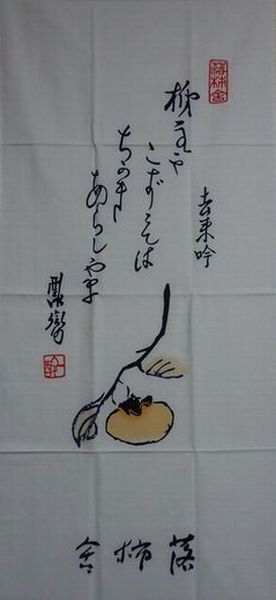 落柿舎
去来吟
柿主や
こずゑは
ちかき
あらしやま
落柿舎